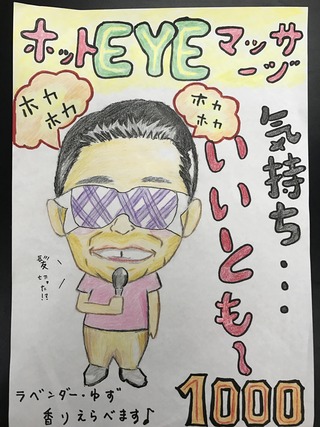 ホットEYEマッサージ
ホカ
ホカ
ホカ
ホカ
気持ち・・・
いいとも〜
髪切った!?
ラベンダー・ゆず
香りえらべます♪
1000